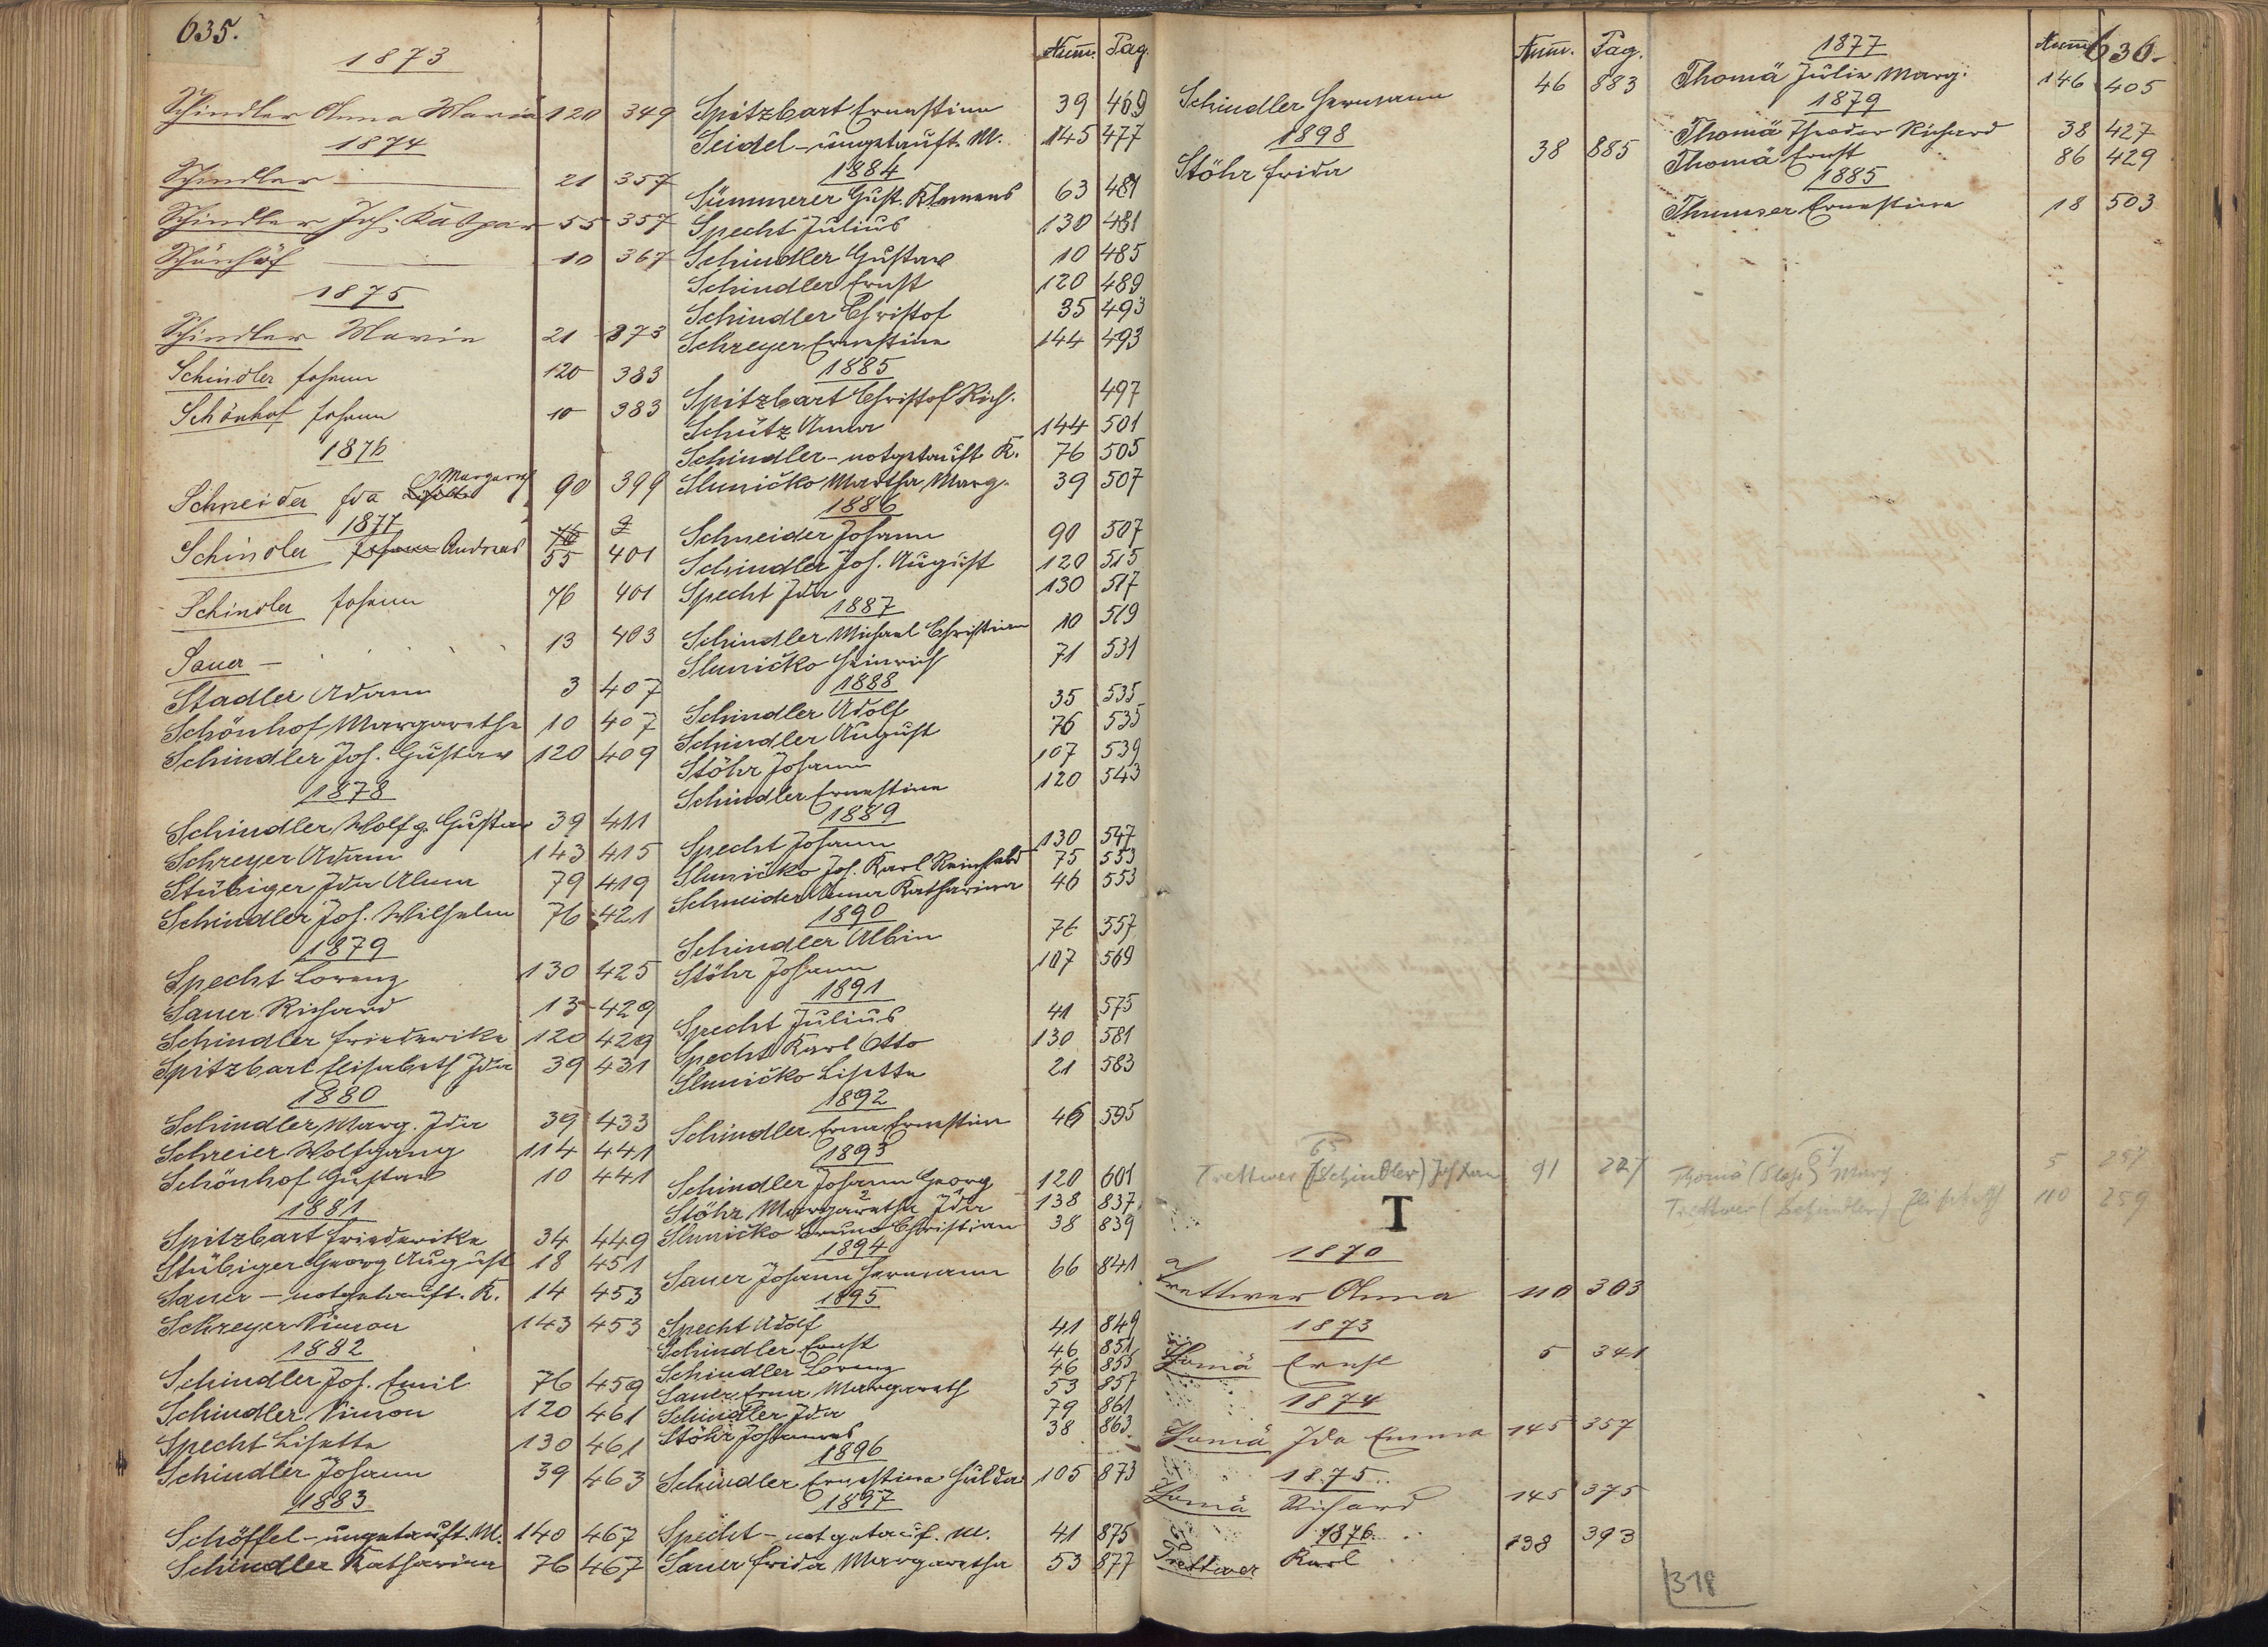 635.
1873
Schindler Anna Maria 120 349
1874
Schindler — 21 357
Schindler Joh. Kaspar 55 357
Schönhof — 10 367
1875
Schindler Maria 21 373
Schindler Johann 120 383
Schönhof Johann 10 383
1876
Margareth
Schneider Ida 90 399
1877
Schindler Johann Andreas 55 401
Schindler Johann 76 401
Sauer — 13 403
Stadler Adam 3 407
Schönhof Margaretha 10 407
Schindler Joh. Gustav 120 409
1878
Schindler Wolfg. Gustav 39 411
Schreyer Adam 143 415
Stübiger Ida Alma 79 419
Schindler Joh. Wilhelm 76 421
1879
Specht Lorenz 130 425
Sauer Richard 13 429
Schindler Friederike 120 429
Spitzbart Elisabeth Ida 39 431
1880
Schindler Marg. Ida 39 433
Schreier Wolfgang 114 441
Schönhof Gustav 10 441
1881
Spitzbart Friederike 34 449
Stübiger Georg August 18 451
Sauer – notgetauft. K. 14 453
Schreyer Simon 143 453
1882
Schindler Joh. Emil 76 459
Schindler Simon 120 461
Specht Lisetta 130 461
Schindler Johann 39 463
1883
Schöffel – ungetauft. M. 140 467
Schindler Katharina 76 467
Num. Pag.
Spitzbart Ernestine 39 469
Seidel – ungetauft M. 145 477
1884
Sümmerer Gust. Klemens 63 481
Specht Julius 130 481
Schindler Gustav 10 485
Schindler Ernst 120 489
Schindler Christof 35 493
Schreyer Ernestine 144 493
1885
Spitzbart Christof Rich. 497
Schütz Anna 144 501
Schindler – notgetauft K. 76 505
Sluničko Martha Marg. 39 507
1886
Schneider Johann 90 507
Schindler Joh. August 120 515
Specht Ida 130 517
1887
Schindler Michael Christian 10 519
Sluničko Heinrich 71 531
1888
Schindler Adolf 35 535
Schindler August 76 535
Stöhr Johann 107 539
Schindler Ernestine 120 543
1889
Specht Johann 130 547
Sluničko Joh. Karl Reinhold 75 553
Schneider Anna Katharina 46 553
1890
Schindler Albin 76 557
Stöhr Johann 107 569
1891
Specht Julius 41 575
Specht Karl Otto 130 581
Sluničko Lisetta 21 583
1892
Schindler Erna Ernestine 46 595
1893
Schindler Johann Georg 120 601
Stöhr Margaretha Ida 138 837
Sluničko Bruno Christian 38 839
1894
Sauer Johann Hermann 66 841
1895
Specht Adolf 41 849
Schindler Ernst 46 851
Schindler Lorenz 46 855
Sauer Erna Margareth 53 857
Schindler Ida 79 861
Stöhr Johannes 38 863
1896
Schindler Ernestine Hulda 105 873
1897
Specht – notgetauf. M. 41 875
Sauer Frida Margaretha 53 877
Num. Pag.
Schindler Hermann 46 883
1898
Stöhr Frida 38 885
65
Trettwer (Schindler) 91 227
T
1870
Trettwer Anna 110 303
1873
Thomä Ernst 5 341
1874
Thomä Ida Emma 145 357
1875
Thomä Richard 145 375
1876
Trettwer Karl 138 393
636.
1877
Num.
Thomä Julie Marg. 146 405
1879
Thomä Theodor Richard 38 427
Thomä Ernst 86 429
1885
Thumser Ernestine 18 503
67
Thomä Marg. 5 257
Trettwer (Schindler) Elisabeth 110 259
318